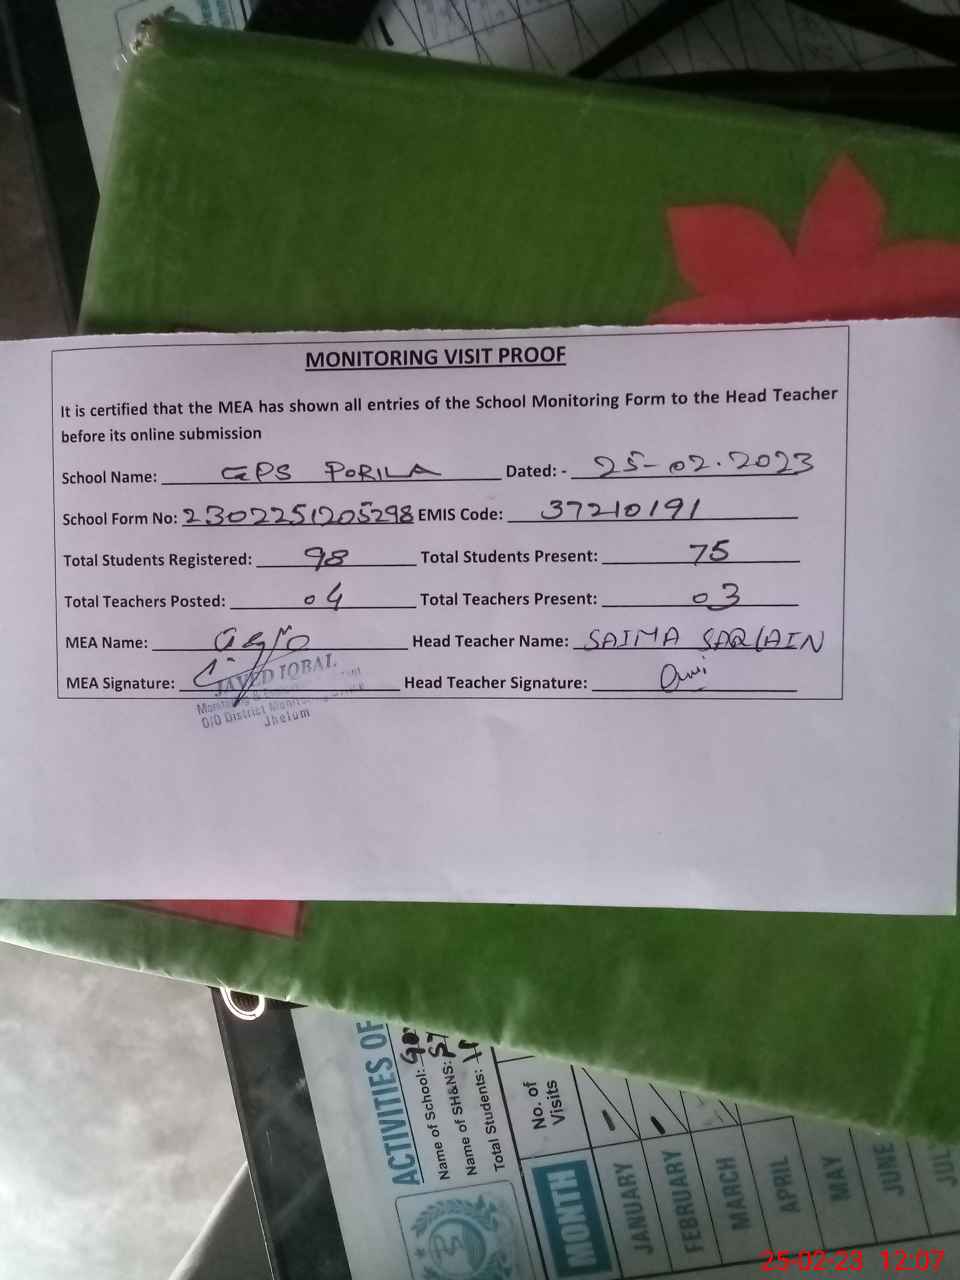 MONITORING VISIT PROOF
It is certified that the MEA has shown all entries of the School Monitoring Form to the Head Teacher
before its online submission
School Name: GPS PORILA Dated: - 25-02.2023
School Form No: 2302251205298 EMIS Code: 37210191
Total Students Registered: 98 Total Students Present: 75
Total Teachers Posted: 04 Total Teachers Present: 03
MEA Name: Head Teacher Name: SAIMA SAQLAIN
MEA Signature: Head Teacher Signature:
JAVED IQBAL
O/O District
Jhelum
ACTIVITIES OF
Name of School:
Name of SH&NS:
Total Students:
No. of
Visits
MONTH
JANUARY
FEBRUARY
MARCH
APRIL
MAY
JUNE
JUL
25-02-23 12:07